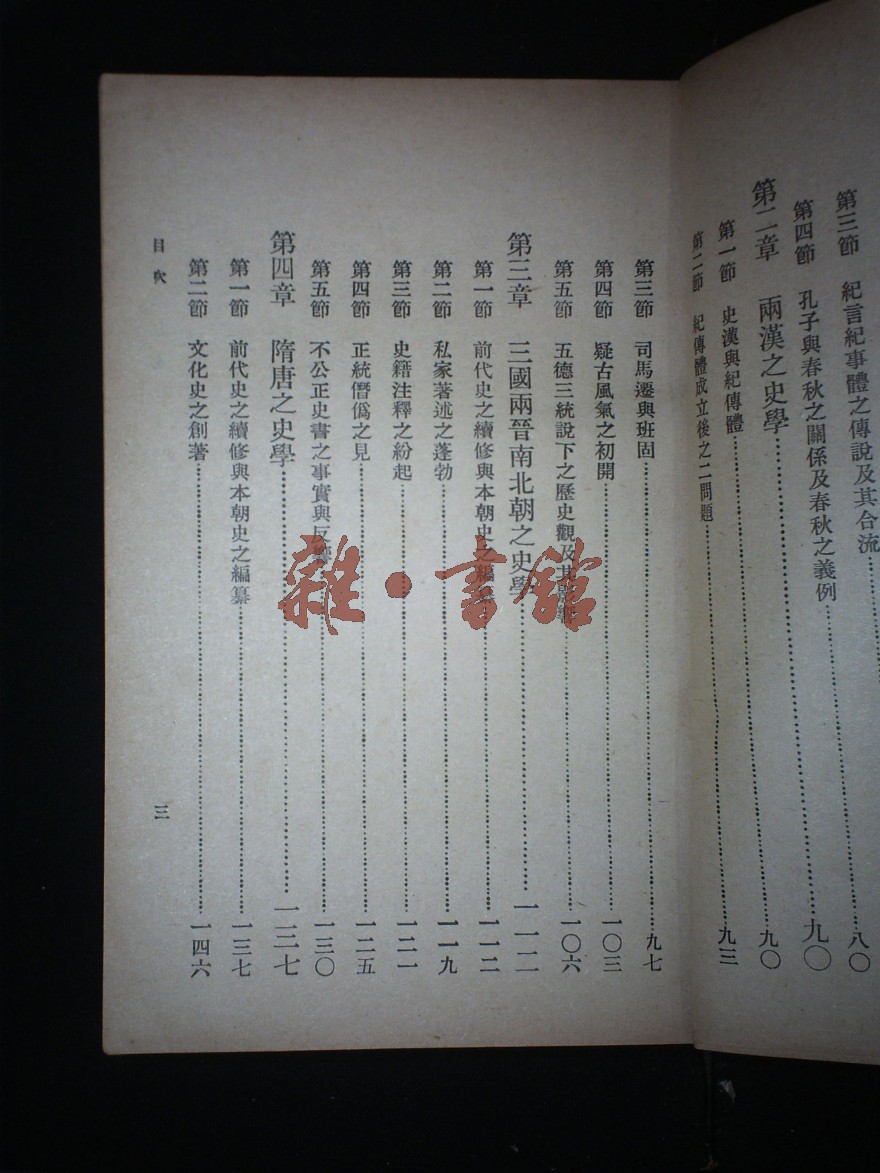 第三節　紀言紀事體之傳說及其合流……八〇
第四節　孔子與春秋之關係及春秋之義例……九〇
第二章　兩漢之史學……九〇
第一節　史漢與紀傳體……九三
第二節　紀傳體成立後之二問題
第三節　司馬遷與班固……九七
第四節　疑古風氣之初開……一〇三
第五節　五德三統說下之歷史觀及其影響……一〇六
第三章　三國兩晉南北朝之史學……一一二
第一節　前代史之續修與本朝史之編纂……一一二
第二節　私家著述之蓬勃……一一九
第三節　史籍注釋之紛起……一二一
第四節　正統僭僞之見……一二五
第五節　不公正史書之事實與反響……一三〇
第四章　隋唐之史學……一三七
第一節　前代史之續修與本朝史之編纂……一三七
第二節　文化史之創著……一四六
目次
三
雜·書館